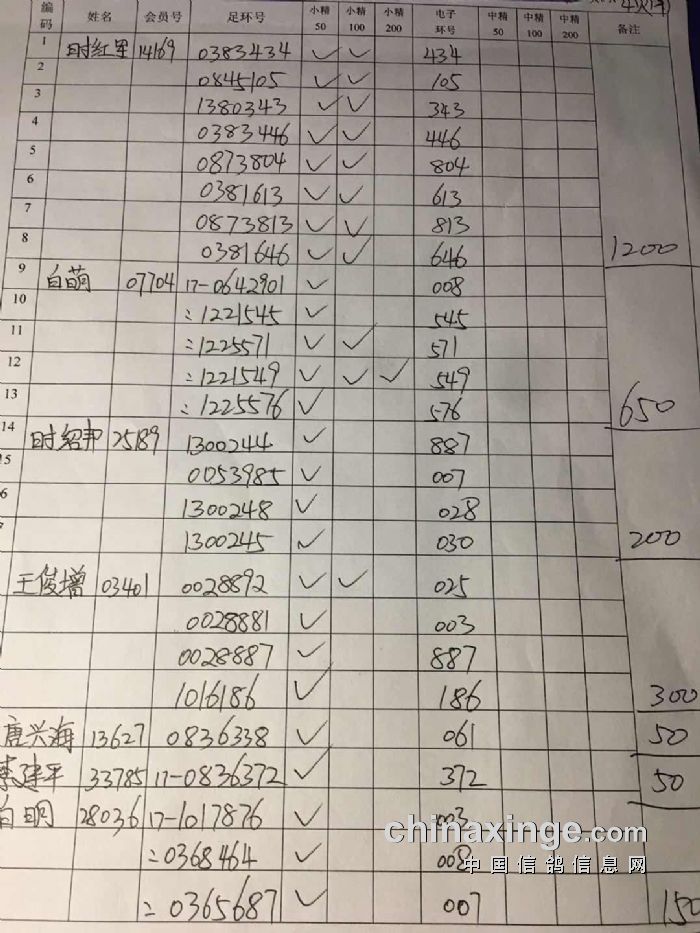 编码 姓名 会员号 足环号 小精50 小精100 小精200 电子环号 中精50 中精100 中精200 备注
1 时红星 14169 0383434 ✓ ✓ 434
2 0845105 ✓ ✓ 105
3 1380343 ✓ ✓ 343
4 0383446 ✓ ✓ 446
5 0873804 ✓ ✓ 804
6 0381613 ✓ ✓ 613
7 0873813 ✓ ✓ 813
8 0381646 ✓ ✓ 646 1200
9 白萌 07704 17-0642901 ✓ 008
10 :1221545 ✓ 545
11 :1225571 ✓ ✓ 571
12 :1221549 ✓ ✓ ✓ 549
13 :1225576 ✓ 576 650
14 时绍邦 25189 1300244 ✓ 887
15 0053985 ✓ 007
6 1300248 ✓ 028
1300245 ✓ 030 200
王俊增 03401 0028892 ✓ ✓ 025
0028881 ✓ 003
0028887 ✓ 887
1016186 ✓ 186 300
唐兴海 13627 0836338 ✓ 061 50
李建平 33785 17-0836372 ✓ 372 50
白明 28036 17-1017876 ✓ 003
:0368464 ✓ 008
:0365687 ✓ 007 150
chinaxinge.com
中国信鸽信息网